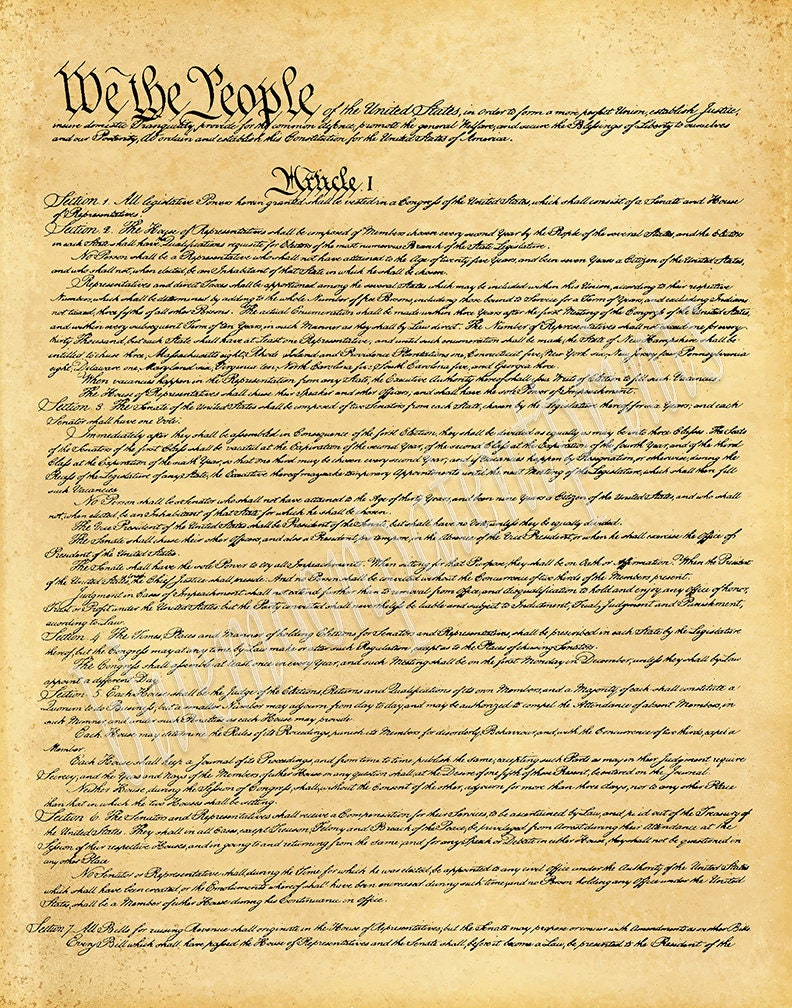 We the People of the United States, in Order to form a more perfect Union, establish Justice,
insure domestic Tranquility, provide for the common defence, promote the general Welfare, and secure the Blessings of Liberty to ourselves
and our Posterity, do ordain and establish this Constitution for the United States of America.
Article I
Section 1. All legislative Powers herein granted shall be vested in a Congress of the United States, which shall consist of a Senate and House
of Representatives.
Section 2. The House of Representatives shall be composed of Members chosen every second Year by the People of the several States, and the Electors
in each State shall have Qualifications requisite for Electors of the most numerous Branch of the State Legislature.
No Person shall be a Representative who shall not have attained to the Age of twenty five Years, and been seven Years a Citizen of the United States,
and who shall not, when elected, be an Inhabitant of that State in which he shall be chosen.
Representatives and direct Taxes shall be apportioned among the several States which may be included within this Union, according to their respective
Numbers, which shall be determined by adding to the whole Number of free Persons, including those bound to Service for a Term of Years, and excluding Indians
not taxed, three fifths of all other Persons. The actual Enumeration shall be made within three Years after the first Meeting of the Congress of the United States,
and within every subsequent Term of ten Years, in such Manner as they shall by Law direct. The Number of Representatives shall not exceed one for every
thirty Thousand, but each State shall have at Least one Representative, and until such enumeration shall be made, the State of New Hampshire shall be
entitled to chuse three, Massachusetts eight, Rhode Island and Providence Plantations one, Connecticut five, New York six, New Jersey four, Pennsylvania
eight, Delaware one, Maryland six, Virginia ten, North Carolina five, South Carolina five, and Georgia three.
When vacancies happen in the Representation from any State, the Executive Authority thereof shall issue Writs of Election to fill such Vacancies.
The House of Representatives shall chuse their Speaker and other Officers, and shall have the sole Power of Impeachment.
Section 3. The Senate of the United States shall be composed of two Senators from each State, chosen by the Legislature thereof for six Years, and each
Senator shall have one Vote.
Immediately after they shall be assembled in Consequence of the first Election, they shall be divided as equally as may be into three Classes. The Seats
of the Senators of the first Class shall be vacated at the Expiration of the second Year, of the second Class at the Expiration of the fourth Year, and of the third
Class at the Expiration of the sixth Year, so that one third may be chosen every second Year, and if Vacancies happen by Resignation, or otherwise, during the
Recess of the Legislature of any State, the Executive thereof may make temporary Appointments until the next Meeting of the Legislature, which shall then fill
such Vacancies.
No Person shall be a Senator who shall not have attained to the Age of thirty Years, and been nine Years a Citizen of the United States, and who shall
not, when elected, be an Inhabitant of that State for which he shall be chosen.
The Vice President of the United States shall be President of the Senate, but shall have no Vote, unless they be equally divided.
The Senate shall chuse their other Officers, and also a President pro tempore, in the Absence of the Vice President, or when he shall exercise the Office of
President of the United States.
The Senate shall have the sole Power to try all Impeachments. When sitting for that Purpose, they shall be on Oath or Affirmation. When the President
of the United States, the Chief Justice shall preside: And no Person shall be convicted without the Concurrence of two thirds of the Members present.
Judgment in Cases of Impeachment shall not extend further than to removal from Office, and disqualification to hold and enjoy any Office of honor,
Trust or Profit under the United States: but the Party convicted shall nevertheless be liable and subject to Indictment, Trial, Judgment and Punishment,
according to Law.
Section 4. The Times, Places and Manner of holding Elections for Senators and Representatives, shall be prescribed in each State by the Legislature
thereof; but the Congress may at any time by Law make or alter such Regulations, except as to the Places of chusing Senators.
The Congress shall assemble at least once in every Year, and such Meeting shall be on the first Monday in December, unless they shall by Law
appoint a different Day.
Section 5. Each House shall be the Judge of the Elections, Returns and Qualifications of its own Members, and a Majority of each shall constitute a
Quorum to do Business; but a smaller Number may adjourn from day to day, and may be authorized to compel the Attendance of absent Members, in
such Manner, and under such Penalties as each House may provide.
Each House may determine the Rules of its Proceedings, punish its Members for disorderly Behaviour, and, with the Concurrence of two thirds, expel a
Member.
Each House shall keep a Journal of its Proceedings, and from time to time publish the same, excepting such Parts as may in their Judgment require
Secrecy; and the Yeas and Nays of the Members of either House on any question shall, at the Desire of one fifth of those Present, be entered on the Journal.
Neither House, during the Session of Congress, shall, without the Consent of the other, adjourn for more than three days, nor to any other Place
than that in which the two Houses shall be sitting.
Section 6. The Senators and Representatives shall receive a Compensation for their Services, to be ascertained by Law, and paid out of the Treasury of
the United States. They shall in all Cases, except Treason, Felony and Breach of the Peace, be privileged from Arrest during their Attendance at the
Session of their respective Houses, and in going to and returning from the same; and for any Speech or Debate in either House, they shall not be questioned in
any other Place.
No Senator or Representative shall, during the Time for which he was elected, be appointed to any civil Office under the Authority of the United States
which shall have been created, or the Emoluments whereof shall have been encreased during such time; and no Person holding any Office under the United
States, shall be a Member of either House during his Continuance in Office.
Section 7. All Bills for raising Revenue shall originate in the House of Representatives; but the Senate may propose or concur with Amendments as on other Bills.
Every Bill which shall have passed the House of Representatives and the Senate, shall, before it become a Law, be presented to the President of the